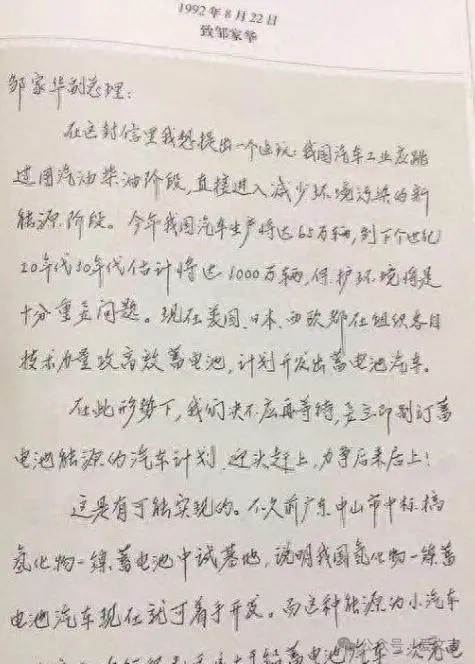 1992年8月22日
致邹家华
邹家华副总理:
在这封信里我想提出一个建议:我国汽车工业应跳
过用汽油柴油阶段,直接进入减少环境污染的新
能源阶段。今年我国汽车生产将达65万辆,到下个世纪
20年代30年代估计将达1000万辆,保护环境将是
十分重要问题。现在美国、日本、西欧都在组织各自
技术力量攻高效蓄电池,计划开发出蓄电池汽车。
在此形势下,我们决不应再等待,要立即制订蓄
电池能源的汽车计划,迎头赶上,力争后来居上!
这是有可能实现的。不久前广东中山市中标搞
氢化物-镍蓄电池中试基地,说明我国氢化物-镍蓄
电池汽车现在就可着手开发。而这种能源的小汽车
蓄电池汽车一次充电
公众号